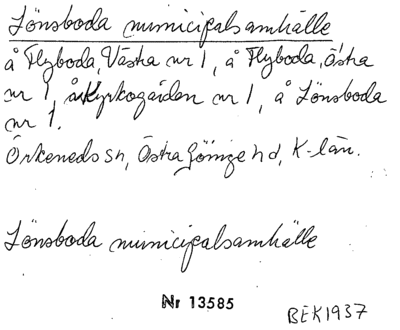 Lönsboda municipalsamhälle
å Flyboda, Västra nr 1, å Flyboda, Östra
nr 1, å Kyrkogården nr 1, å Lönsboda
nr 1.
Örkeneds sn, Östra Göinge hd, K-län.
Lönsboda municipalsamhälle
Nr 13585
BEK1937